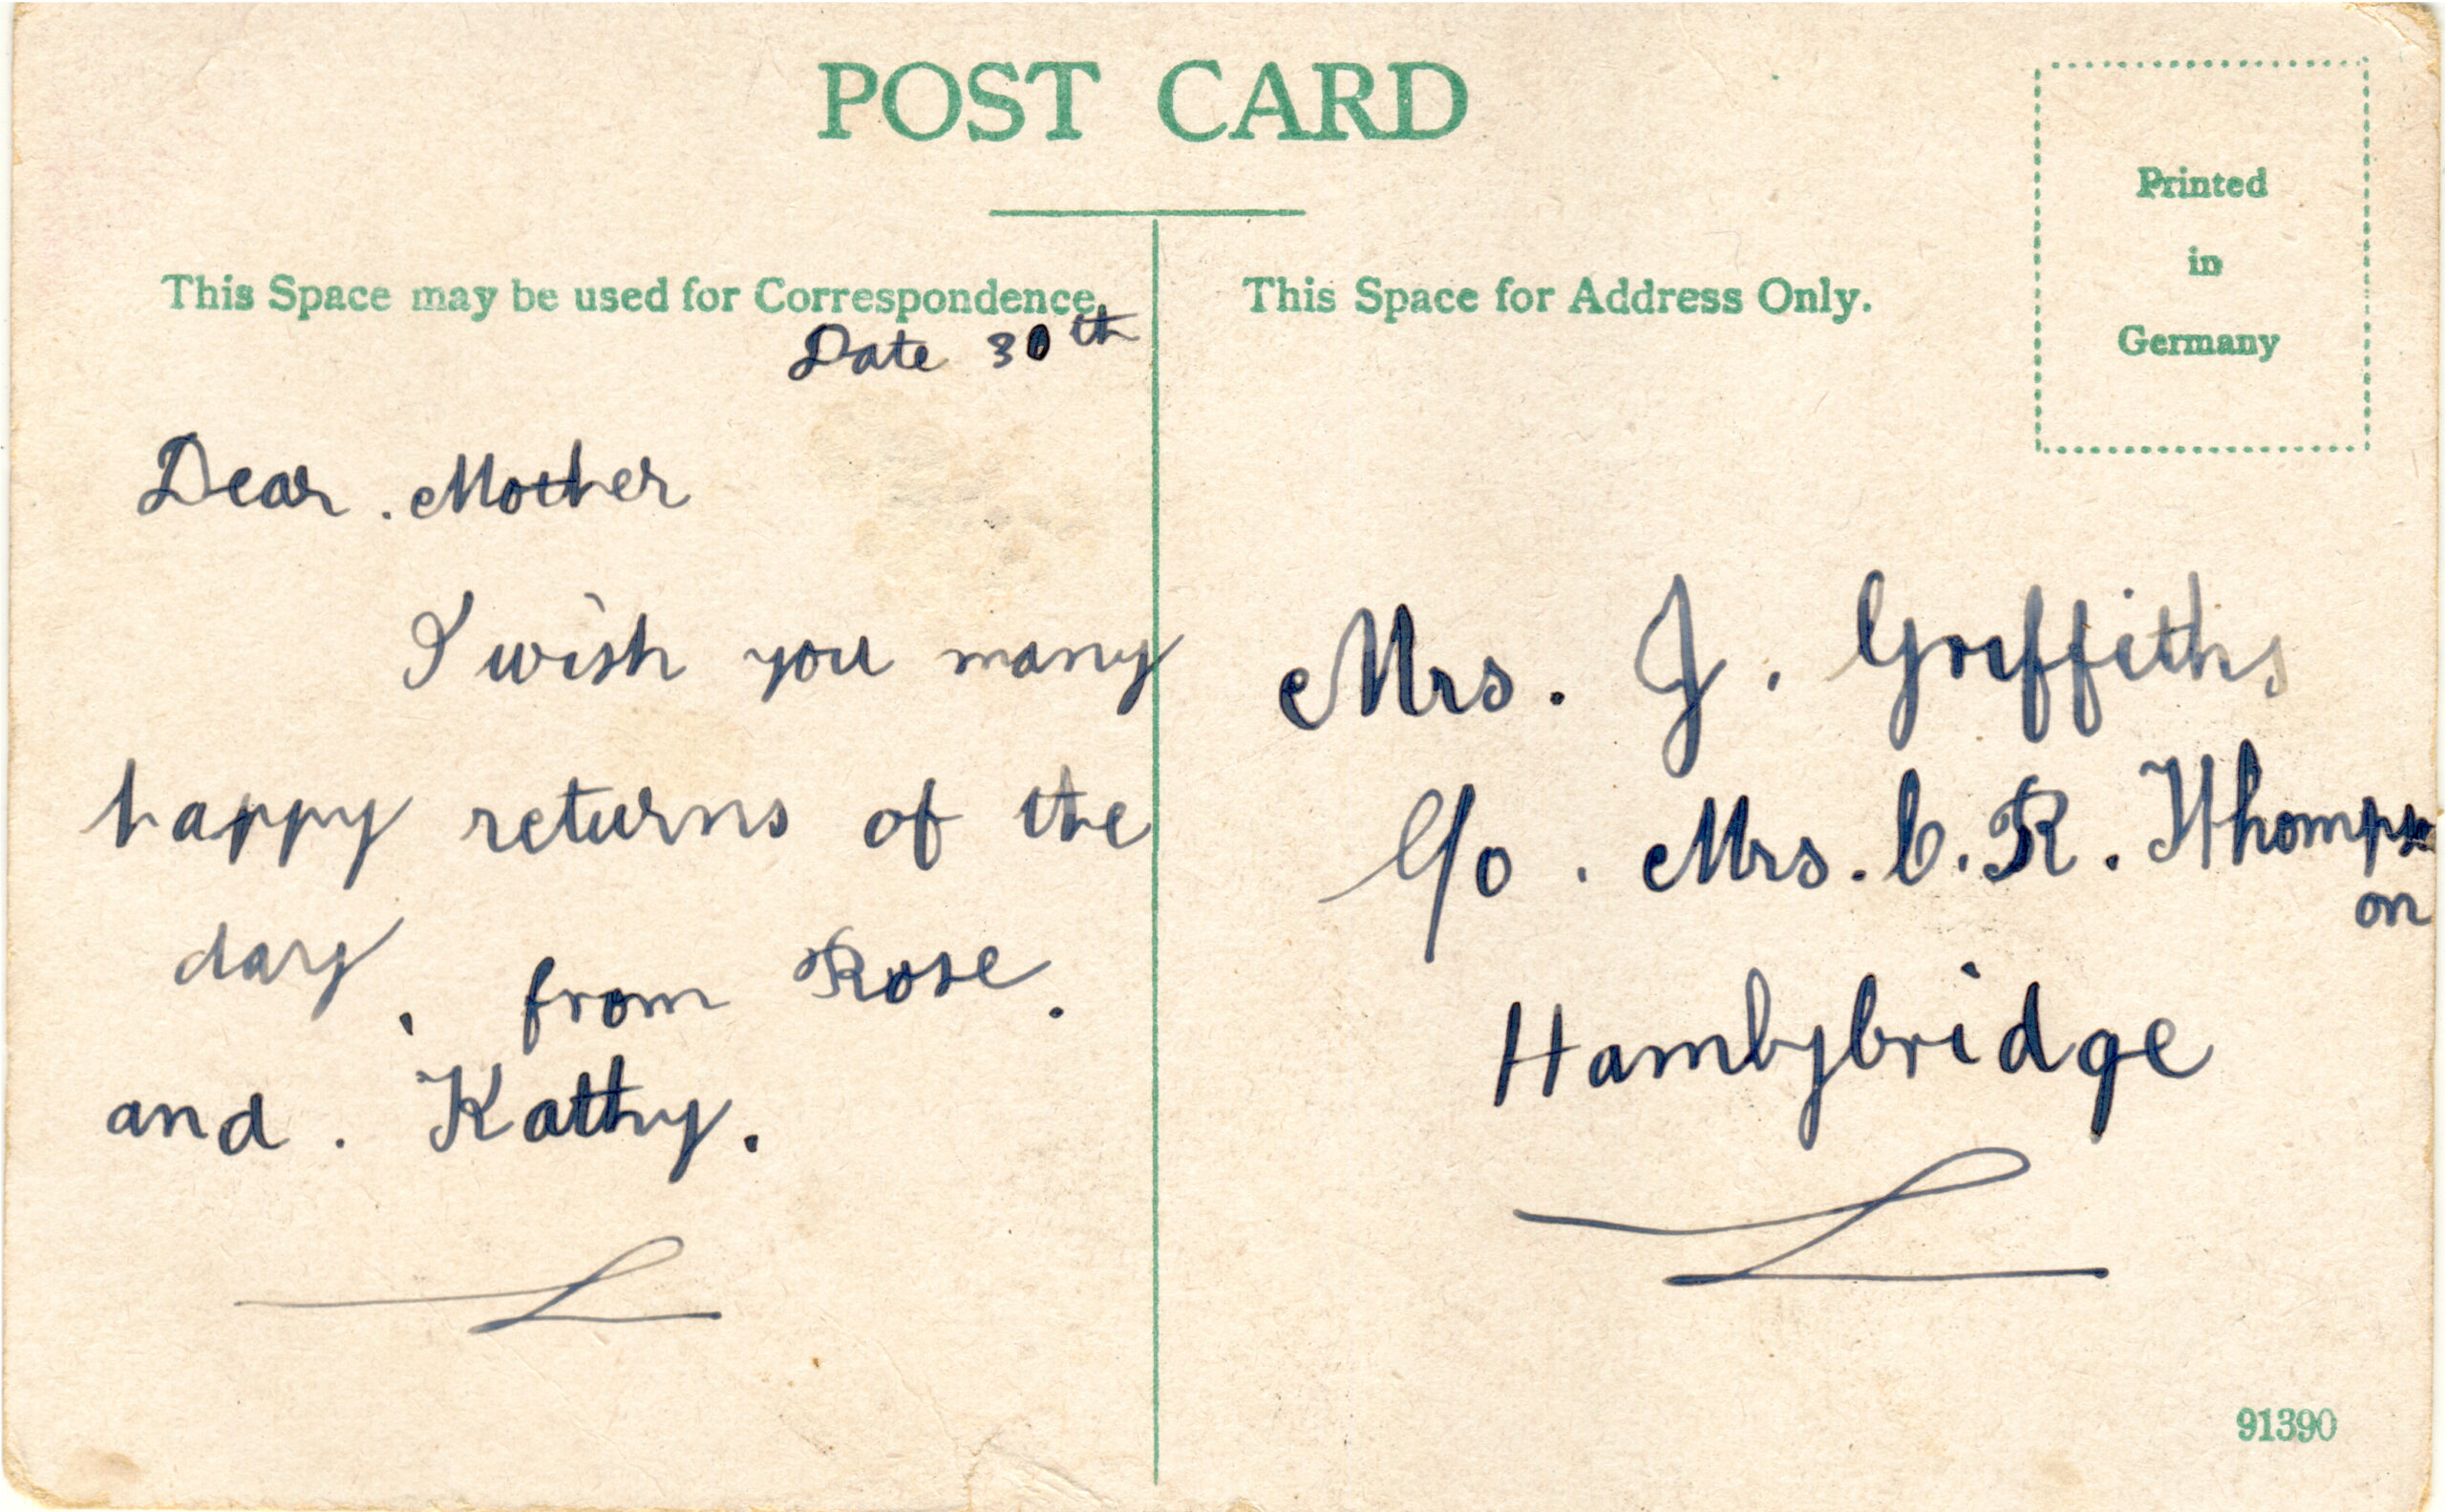 POST CARD
This Space may be used for Correspondence.
Date 30th
Dear . Mother
I wish you many
happy returns of the
day . from Rose .
and . Kathy .
This Space for Address Only.
Printed
in
Germany
Mrs . J . Griffiths
C/o . Mrs . C . R . Thomps
on
Hambybridge
91390